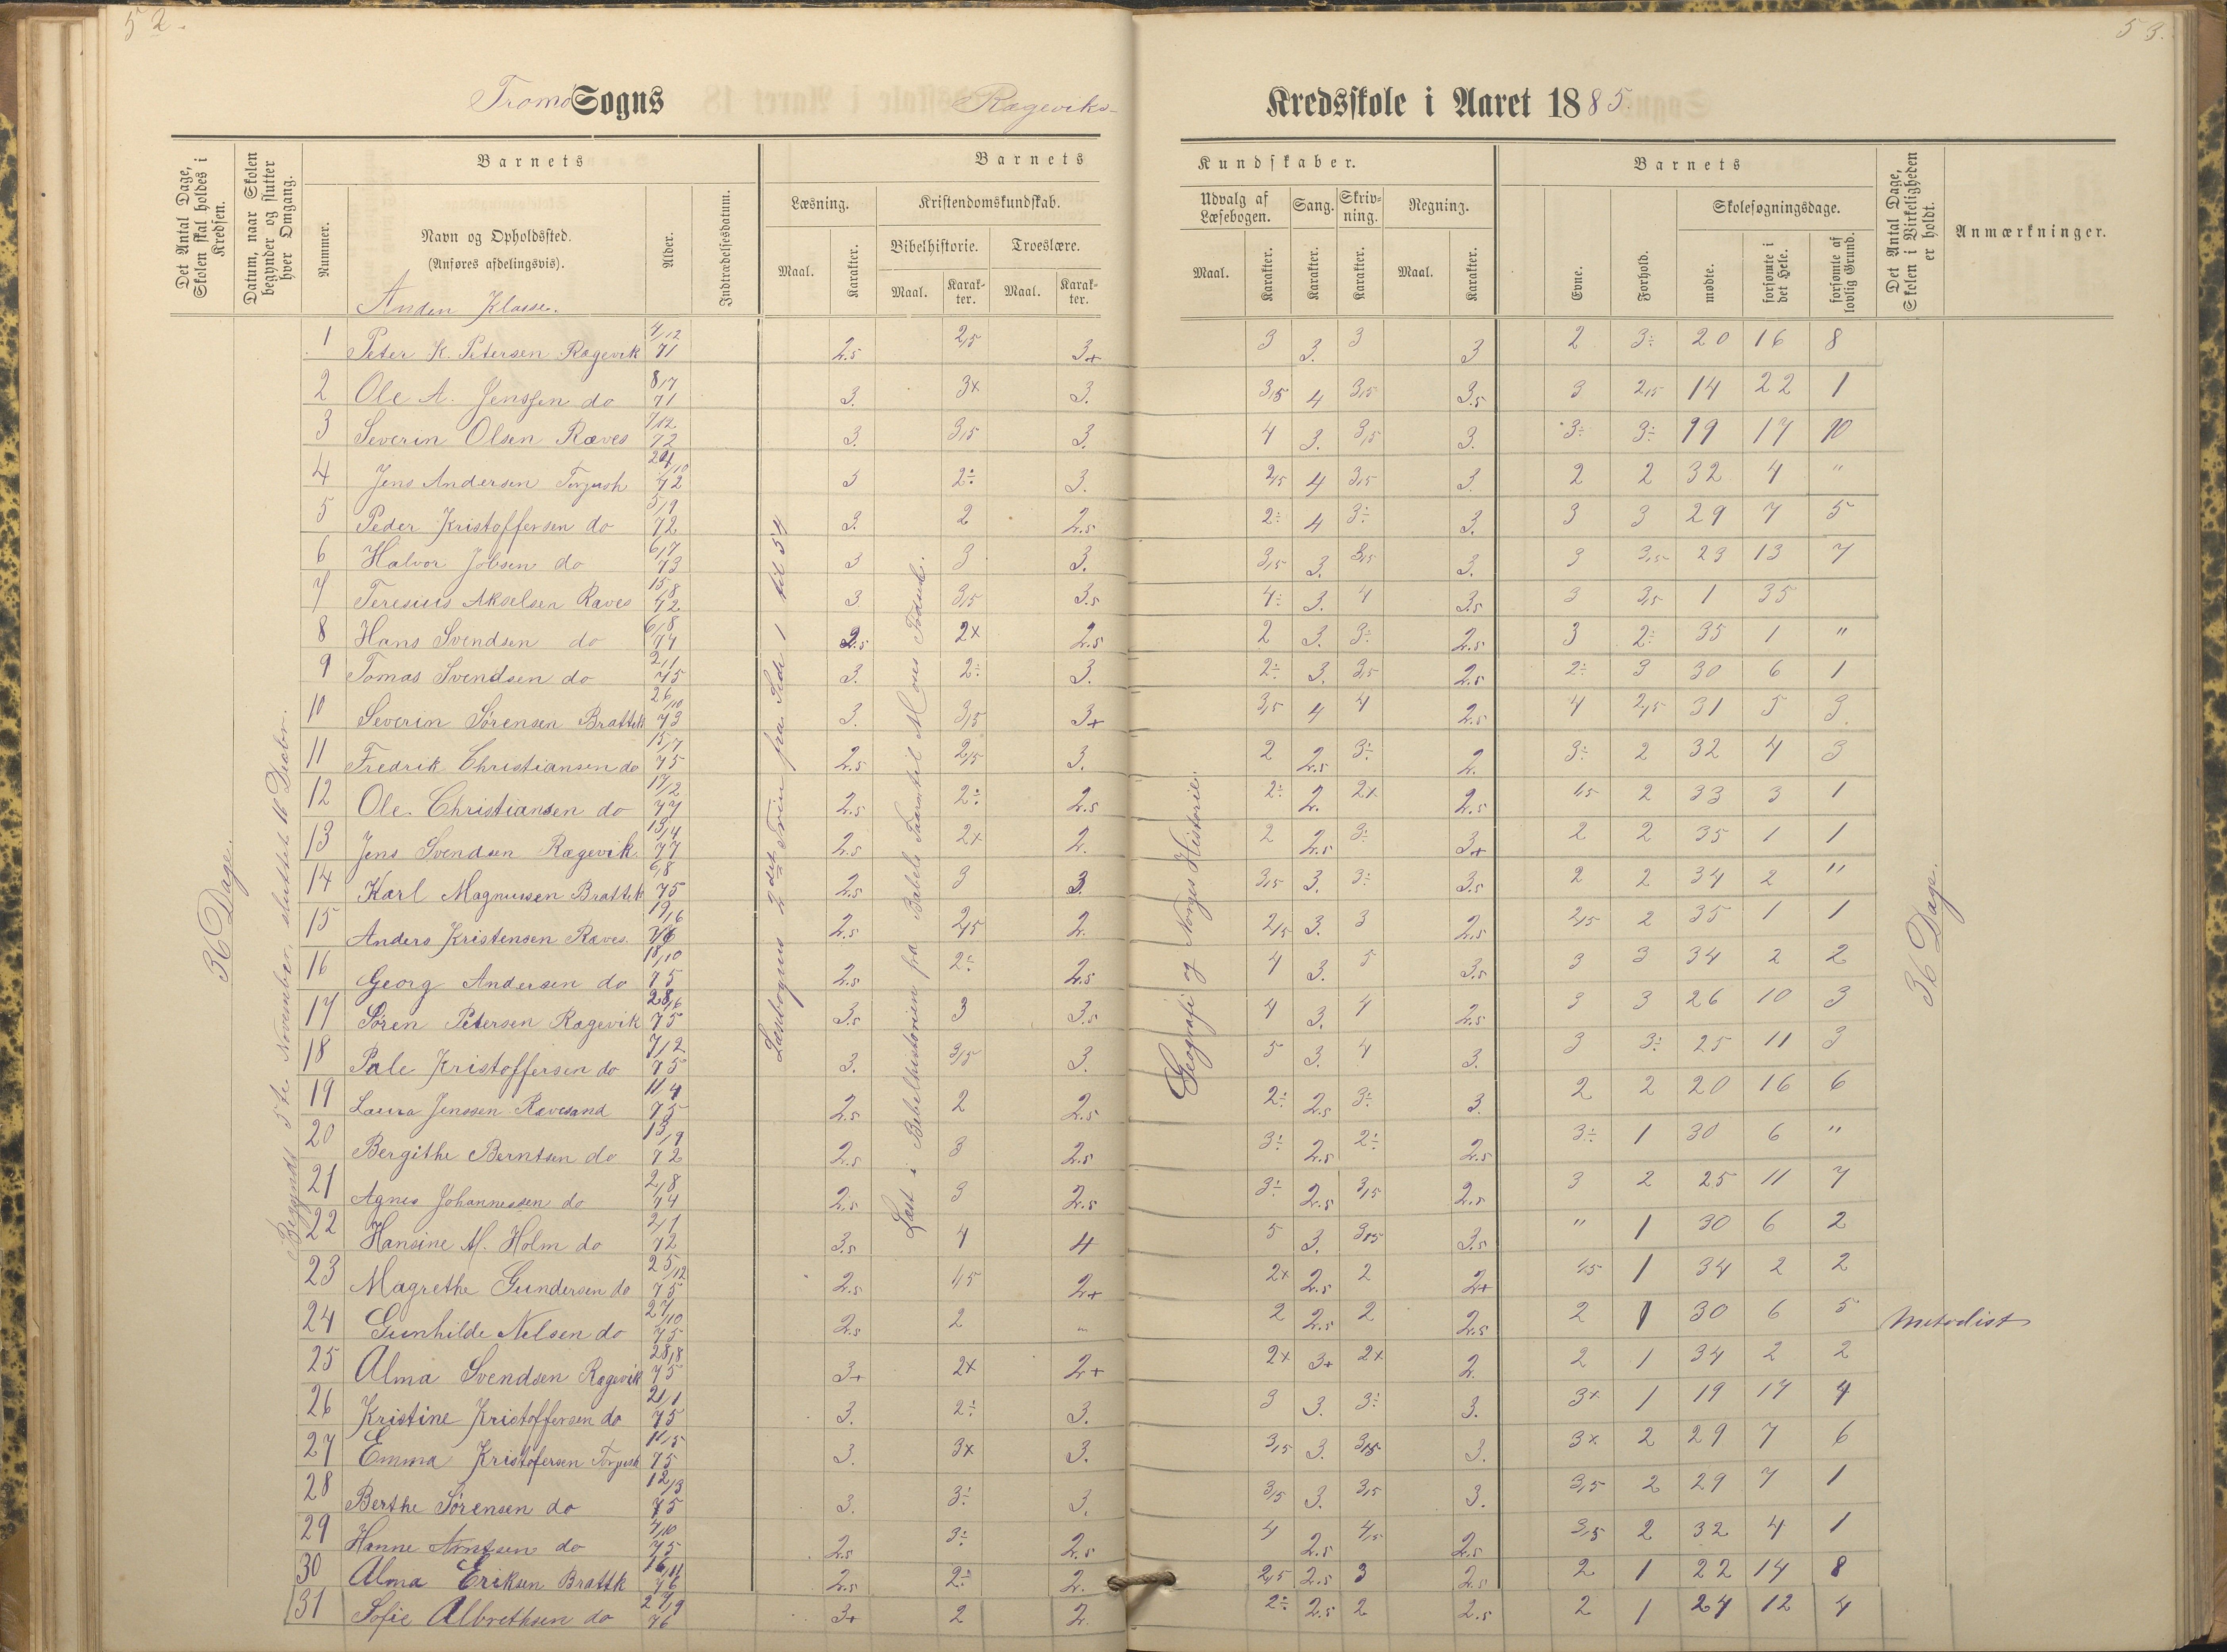 52.
53.
Tromø Sogns Rægeviks- Kredsskole i Aaret 1885.
Det Antal Dage, Skolen skal holdes i Kredsen.
Datum, naar Skolen begynder og slutter hver Omgang.
Barnets
Nummer.
Navn og Opholdssted.
(Anføres afdelingsvis).
Anden Klasse.
Alder.
Indtrædelsesdatum.
Barnets
Kundskaber.
Læsning.
Maal.
Karakter.
Kristendomskundskab.
Bibelhistorie.
Maal.
Karakter.
Troeslære.
Maal.
Karakter.
Udvalg af Læsebogen.
Maal.
Karakter.
Sang.
Karakter.
Skrivning.
Karakter.
Regning.
Maal.
Karakter.
Barnets
Evne.
Forhold.
Skolesøgningsdage.
mødte.
forsømte i det Hele.
forsømte af lovlig Grund.
Det Antal Dage, Skolen i Virkeligheden er holdt.
Anmærkninger.
36 Dage.
Begyndt 5te November, sluttet 16 Decbr.
Læsebogens 2det Trin fra Side 1 til 54
Læst i Bibelhistorien fra Babels Taarn til Moses
Geografi og Norges Historie.
36 Dage.
1 Peter K. Petersen Rægevik 4/12 71 2.5 2,5 3+ 3 3. 3 3 2 3÷ 20 16 8
2 Ole A. Jenssen do 8/7 71 3. 3x 3. 3,5 4 3,5 3.5 3 2,5 14 22 1
3 Severin Olsen Raves 7/12 72 3. 3,5 3. 4 3. 3,5 3. 3÷ 3÷ 19 17 10
4 Jens Andersen Torjush 72 3 2÷ 3. 2,5 4 3,5 3. 2 2 32 4 "
5 Peder Kristoffersen do 5/9 72 3. 2 2.5 2÷ 4 3÷ 3. 3 3 29 7 5
6 Halvor Jobsen do 6/7 73 3 3 3. 3,5 3. 3,5 3. 3 3,5 23 13 7
7 Teresius Akselsen Raves 15/8 72 3 3,5 3.5 4÷ 3. 4 3.5 3 3,5 1 35
8 Hans Svendsen do 6/8 74 2.5 2x 2.5 2 3. 3÷ 2.5 3 2÷ 35 1 "
9 Tomas Svendsen do 2/1 75 3. 2÷ 3. 2÷ 3. 3,5 2.5 2÷ 3 30 6 1
10 Severin Sørensen Brattek 26/10 73 3. 3,5 3+ 3,5 4 4 2.5 4 2,5 31 5 3.
11 Fredrik Christiansen do 15/7 75 2.5 2,5 3. 2 2.5 3÷ 2. 3÷ 2 32 4 3
12 Ole Christiansen do 17/2 77 2.5 2÷ 2.5 2÷ 2. 2x 2.5 1,5 2 33 3 1
13 Jens Svendsen Rægevik 13/4 77 2.5 2x 2. 2 2.5 3÷ 3+ 2 2 35 1 1
14 Karl Magnussen Brattek 6/8 75 2.5 3 3. 3,5 3. 3÷ 3.5 2 2 34 2 "
15 Anders Kristensen Raves 19/6 76 2.5 2,5 2. 2,5 3. 3 2.5 2,5 2 35 1 1
16 Georg Andersen do 18/10 75 2.5 2÷ 2.5 4 3. 5 3.5 3 3 34 2 2
17 Søren Petersen Rægevik 28/6 75 3.5 3 3.5 4 3. 4 2.5 3 3 26 10 3
18 Pale Kristoffersen do 7/12 75 3. 3,5 3. 5 3. 4 3. 3 3÷ 25 11 3
19 Laura Jenssen Ravesand 11/4 75 2.5 2 2.5 2÷ 2.5 3÷ 3. 2 2 20 16 6
20 Bergithe Berntsen do 13/9 72 2.5 3 2.5 3÷ 2.5 2÷ 2.5 3÷ 1 30 6 "
21 Agnes Johannessen do 2/8 74 2.5 3 2.5 3÷ 2.5 3,5 2.5 3 2 25 11 7
22 Hansine M. Holm do 2/1 72 3.5 4 4 5 3. 3,5 3.5 " 1 30 6 2
23 Magrethe Gundersen do 25/12 75 2.5 1,5 2+ 2x 2.5 2 2+ 1,5 1 34 2 2
24 Gunhilde Nelsen do 27/10 75 2.5 2 " 2 2.5 2 2.5 2 1 30 6 5 Metodist
25 Alma Svendsen Rægevik 28/8 75 3+ 2x 2+ 2x 3+ 2x 2. 2 1 34 2 2
26 Kristine Kristoffersen do 21/1 75 3. 2÷ 3. 3 3. 3÷ 3. 3x 1 19 17 4
27 Emma Kristofersen Torjush 11/5 75 3. 3x 3. 3,5 3. 3,5 3. 3x 2 29 7 6
28 Berthe Sørensen do 12/3 75 3. 3÷ 3. 3,5 3. 3,5 3. 3,5 2 29 7 1
29 Hanne Arntsen do 4/10 75 2.5 3÷ 2.5 4 2.5 4,5 2.5 3,5 2 32 4 1
30 Alma Eriksen Brattk 16/11 76 2.5 2÷ 2. 2,5 2.5 3 2.5 2 1 22 14 8
31 Sofie Albrethsen do 27/9 76 3+ 2 2. 2÷ 2.5 2 2.5 2 1 24 12 4